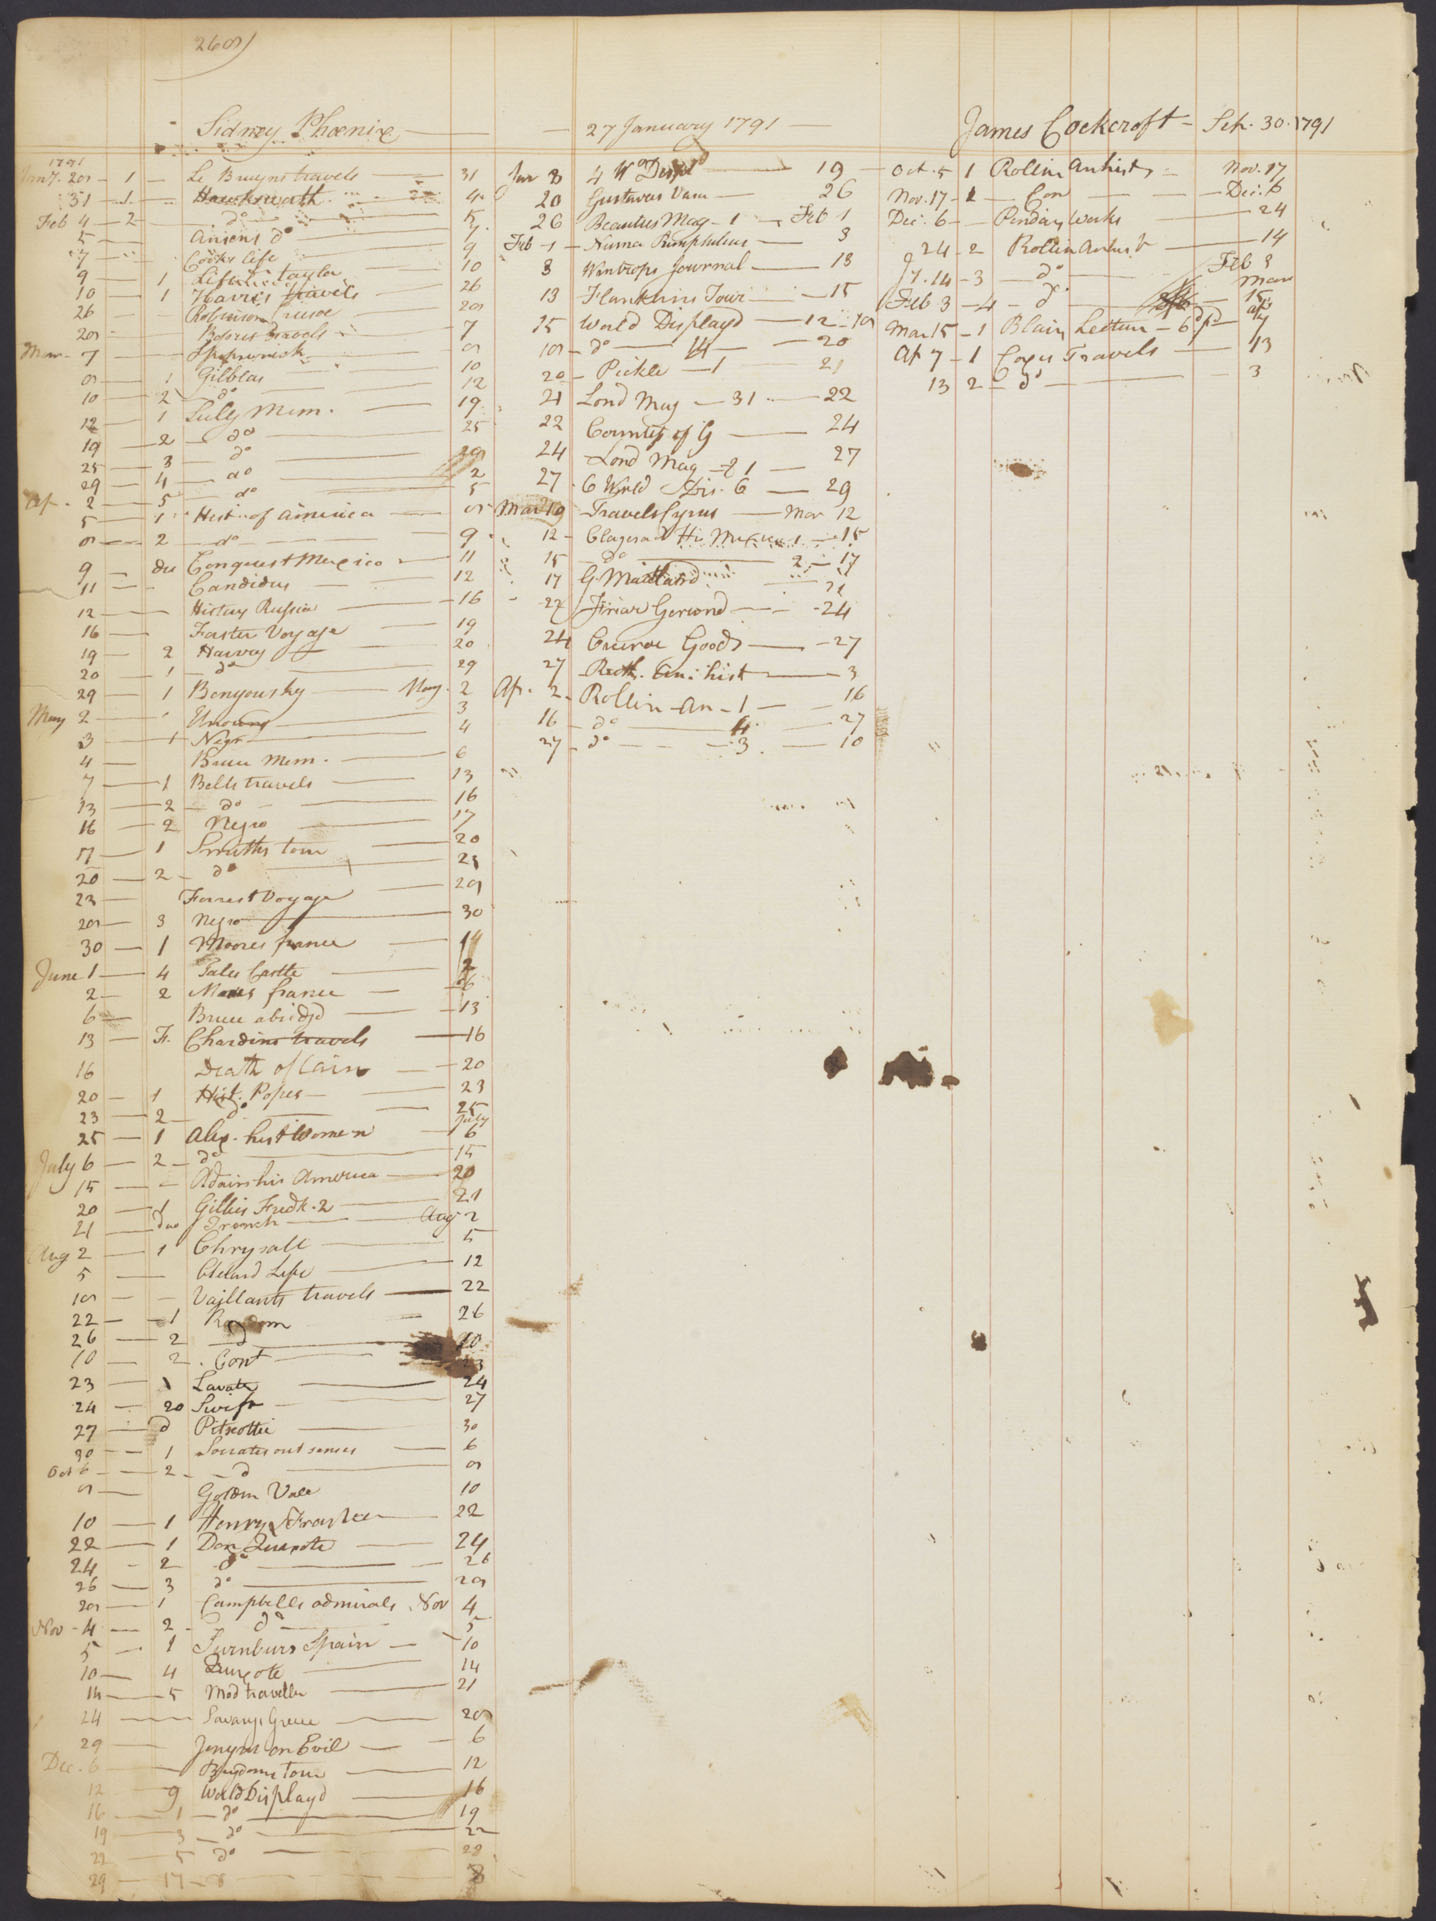 268)
Sidney Phoenix — 27 January 1791 —
1791
Jany. 28 - 1 - Le Bruyns travels 31
31 - 1 - Hawksworth 4
Feb 4 - 2 - do 5
5 - Ansons do 7
7 - Cooks life 9
9 - 1 Life taylor 10
10 - 1 Harris travels 26
26 - Robinson Crusoe 28
28 - travels - 7
Mar. 7 - 8
8 1 Gilblas 10
10 - 2 - do 12
12 - 1 Sully Mem. 19
19 - 2 - do 25
25 - 3 - do 29
29 - 4 - do 2
Ap. 2 - 5 - do 5
5 - 1 Hist. of America 8
8 - 2 - do 9
9 - duo Conquest Mexico 11
11 - Candidus 12
12 - History Russia 16
16 - Foster Voyage 19
19 - 2 Harvey 20
20 - 1 - do 29
29 - 1 Benyousky May 2
May 2 - 3
3 - 1 Negro 4
4 - Bruce Mem. 6
7 - 1 Bells travels 13
13 - 2 - do 16
16 - 2 Negro 17
17 - 1 Smiths tour 20
20 - 2 - do 23
23 - Forrest Voyage 28
28 - 3 Negro 30
30 - 1 Moores france 1
June 1 - 4 Tales Castle 2
2 - 2 Moores france 6
6 - Bruce abridgd 13
13 - F. Chardins travels 16
16 Death of Cain 20
20 - 1 Hist. Popes 23
23 - 2 - do 25
25 - 1 Alex. hist Women July 6
July 6 - 2 - do 15
15 - Adairs his America 20
20 - 1 Gillies Fredk. 2 21
21 - duo Trench Aug 2
Aug 2 - 1 Chrysall 5
5 - Life 12
18 - Vaillants travels 22
22 - 1 Random 26
26 - 2 - d 10
10 - 2 . Cont 23
23 - 1 Lavater 24
24 - 20 Swift 27
27 - d Pitscottie 30
30 - 1 Socrates out senses 6
Oct 6 - 2 - d 8
8 - Golden Vale 10
10 - 1 Henry & Frances 22
22 - 1 Don Quixote 24
24 - 2 do 26
26 - 3 do 28
28 - 1 Campbells admirals Nov 4
Nov - 4 - 2 - do 5
5 - 1 Spain 10
10 - 4 Quixote 14
14 - 5 Mod traveller 21
24 - Savarys Greece 28
29 - Jenyns on Evil 6
Dec. 6 - Brydone Tour 12
12 9 World Displayd 16
16 - 1 - do 19
19 - 3 - do 22
22 - 5 do 28
29 - 17 - 8
8 4 Wd Displd 19
20 Gustavus Vasa 26
26 Beauties Mag - 1 - Feb 1
Feb - 1 - Numa Pompilius 3
3 Wintrops Journal 13
13 Tour 15
15 World Displayd - 12 - 18
18 - do 14 - 20
20 - Pickle - 1 21
21 Lond Mag - 31 22
22 Countess of G 24
24 Lond Mag - 21 - 27
27 6 World Dis. 6 - 29
Travels Cyrus Mar 12
12 - His Mexico 1 - 15
15 do 2 - 17
17 G. Maitland
22 Friar Gerund 24
24 27
27 Anc. hist 3
Ap. 2 - Rollin An - 1 - 16
16 - do 4 27
27 - do - 3 - 10
James Cockcroft - Feb. 30. 1791
Oct. 5 1 Rollin An hist Nov. 17
Nov. 17 - 2 - Con Dec. 6
Dec. 6 - Pindars Works 24
24 - 2 Rollin An hist 14
J. 14 - 3 - do Feb 3
Feb 3 - 4 - do Mar 15
Mar 15 - 1 - Blairs Lecture - 6d pd 7
Ap 7 - 1 Coxes Travels 13
13 2 - do 3